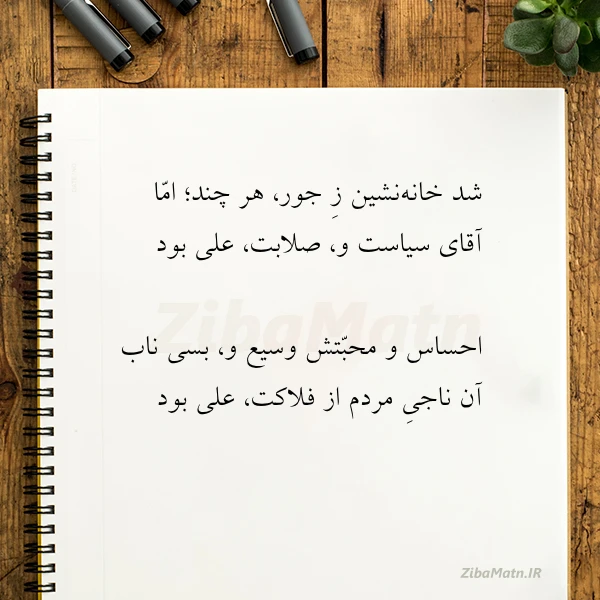 شد خانه‌نشین زِ جور، هر چند؛ امّا
آقای سیاست و، صلابت، علی بود
احساس و محبّتش وسیع و، بسی ناب
آن ناجیِ مردم از فلاکت، علی بود
ZibaMatn
ZibaMatn.IR